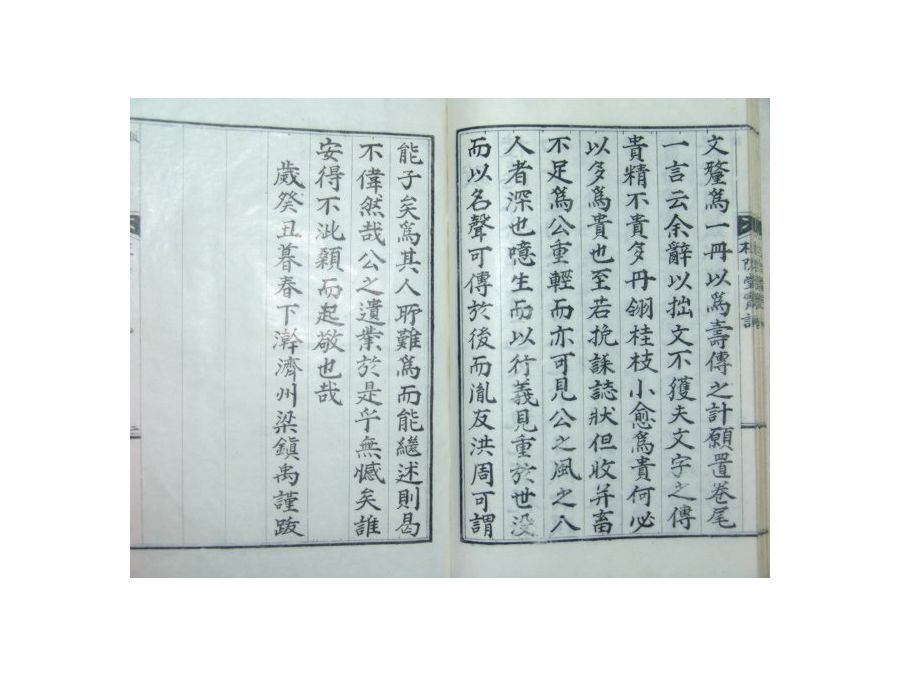 文釐爲一冊以爲壽傳之計願置卷尾
一言云余辭以拙文不獲夫文字之傳
貴精不貴多丹翎桂枝小愈爲貴何必
以多爲貴也至若挽誄誌狀但收并畜
不足爲公重輕而亦可見公之風之入
人者深也噫生而以行義見重於世没
而以名聲可傳於後而胤友洪周可謂
能子矣爲其人所難爲而能繼述則曷
不偉然哉公之遺業於是乎無憾矣誰
安得不泚顙而起敬也哉
歲癸丑暮春下澣濟州梁鎭禹謹跋